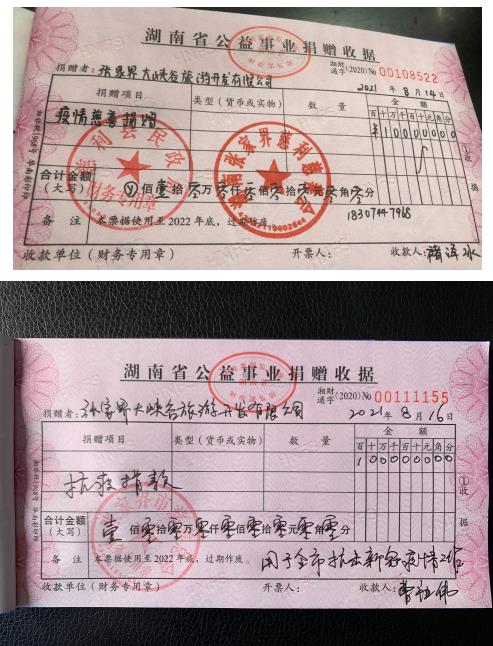 湖南省公益事业捐赠收据
湘财通字(2020) No 00108522
捐赠者：张家界大峡谷旅游开发有限公司 2021 年 8 月 14 日
捐赠项目 类型（货币或实物） 数 量 金 额
百 十 万 千 百 十 元 角 分
疫情慈善捐赠 ¥ 1 0 0 0 0 0 0 0
合计金额（大写） 佰 壹 拾 零 万 零 仟 零 佰 零 拾 零 元 零 角 零 分
18307447968
备 注 本票据使用至2022年底，过期作废
收款单位（财务专用章） 开票人： 收款人：
①收据
财务专用章
湖南省公益事业捐赠收据
湘财通字(2020) No 00111155
捐赠者：张家界大峡谷旅游开发有限公司 2021 年 8 月 16 日
捐赠项目 类型（货币或实物） 数 量 金 额
百 十 万 千 百 十 元 角 分
抗疫捐款 1 0 0 0 0 0 0 0 0
合计金额（大写） 壹 佰 零 拾 零 万 零 仟 零 佰 零 拾 零 元 零 角 零 分
备 注 本票据使用至2022年底，过期作废。 用于全市抗击新冠疫情工作
收款单位（财务专用章） 开票人： 收款人：
①收据